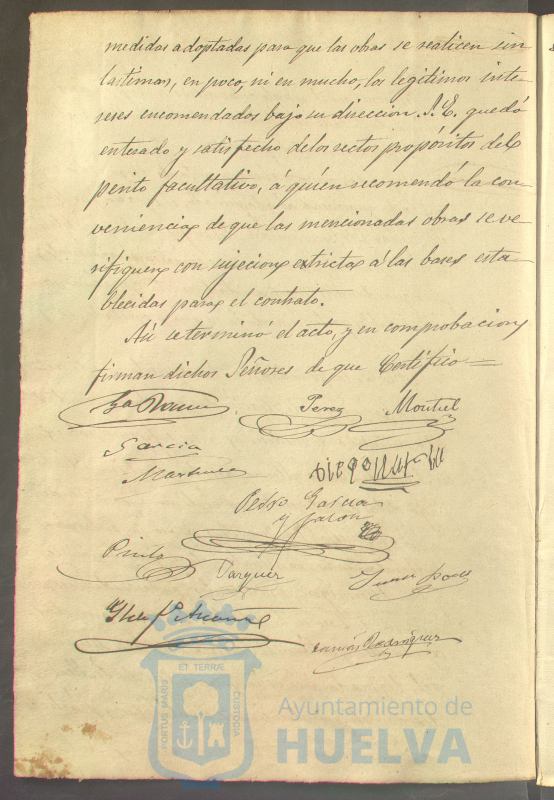 medidas adoptadas para que las obras se realicen sin
lastimar, en poco, ni en mucho, los legítimos inte-
reses encomendados bajo su dirección. S. E. quedó
enterado y satisfecho de los rectos propósitos del
perito facultativo, á quién recomendó la con-
veniencia de que las mencionadas obras se ve-
rifiquen con sujecion extricta á las bases esta-
blecidas para el contrato.
Así se terminó el acto, y en comprobacion
firman dichos Señores de que Certifico=
Perez Montiel
Garcia
Martinez
Pedro Garcia
y Jalon
Pinto
Vazquez
Ramón Rodríguez
PORTUS MARIS ET TERRÆ CUSTODIA
Ayuntamiento de
HUELVA